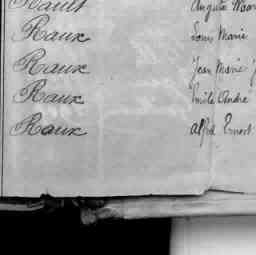 Rault Auguste
Raux Louis Marie
Raux Jean Marie
Raux Emile André
Raux Alfred Ernest